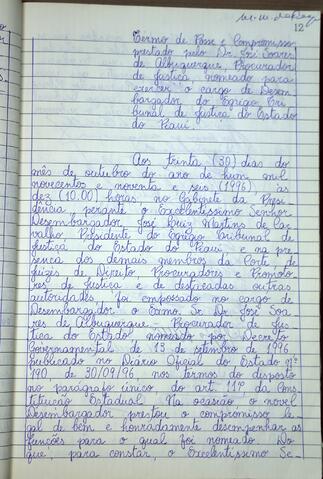 12
Termo de Posse e Compromisso
prestado pelo Dr. José Soares
de Albuquerque, Procurador
de Justiça, nomeado para
exercer o cargo de Desem-
bargador do Egrégio Tri-
bunal de Justiça do Estado
do Piauí.
Aos trinta (30) dias do
mês de outubro do ano de hum mil
novecentos e noventa e seis (1996), às
dez (10.00) horas, no Gabinete da Presi-
dência perante o Excelentíssimo Senhor
Desembargador José Luiz Martins de Car-
valho, Presidente do Egrégio Tribunal de
Justiça do Estado do Piauí e na pre-
sença dos demais membros da Corte de
Juízes de Direito, Procuradores e Promoto-
res de Justiça e de destacadas outras
autoridades, foi empossado no cargo de
Desembargador o Exmo. Sr. Dr. José Soa-
res de Albuquerque - Procurador de Jus-
tiça do Estado, nomeado por Decreto
Governamental de 13 de setembro de 1996
publicado no Diário Oficial do Estado nº
190, de 30/09/96, nos termos do disposto
no parágrafo único, do art. 11º, da Cons-
tituição Estadual. Na ocasião o novel
Desembargador prestou o compromisso le-
gal de bem e honradamente desempenhar as
funções para o qual foi nomeado. Do
que, para constar, o Excelentíssimo Se-